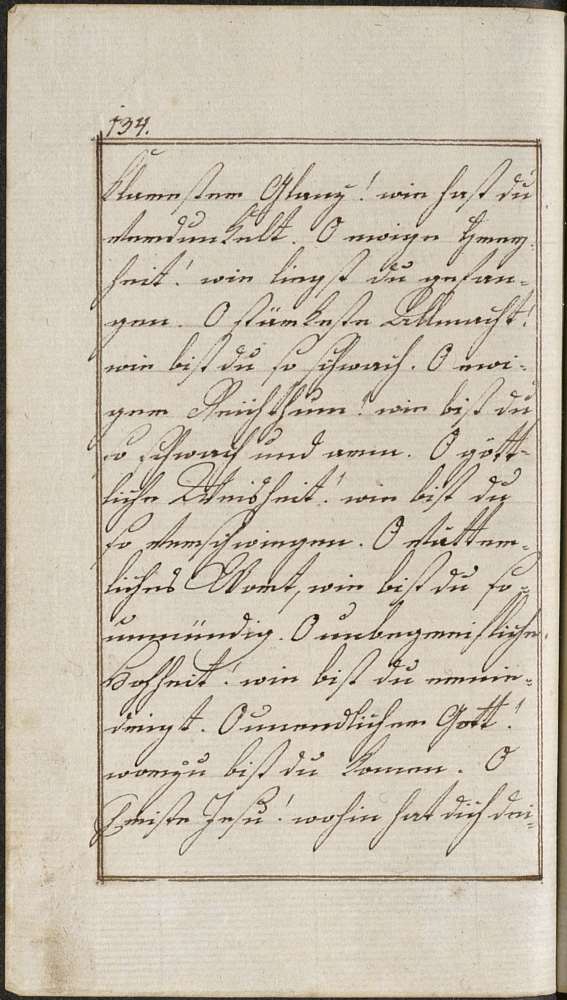 134.
klarester Glanz! wie hast du
verdunkelt. O ewige Herr-
heit! wie liegst du gefan-
gen. O stärkeste Allmacht!
wie bist du so schwach. O ewi-
ger Reichthum! wie bist du
so schwach und arm. O gött-
liche Weisheit! wie bist du
so verschwiegen. O vätter-
liches Wort, wie bist du so
unmündig. O unbegreifliche
Hochheit! wie bist du ernie-
drigt. O unendlicher Gott!
worzu bist du komen. O
Jesu! wohin hat dich dei-